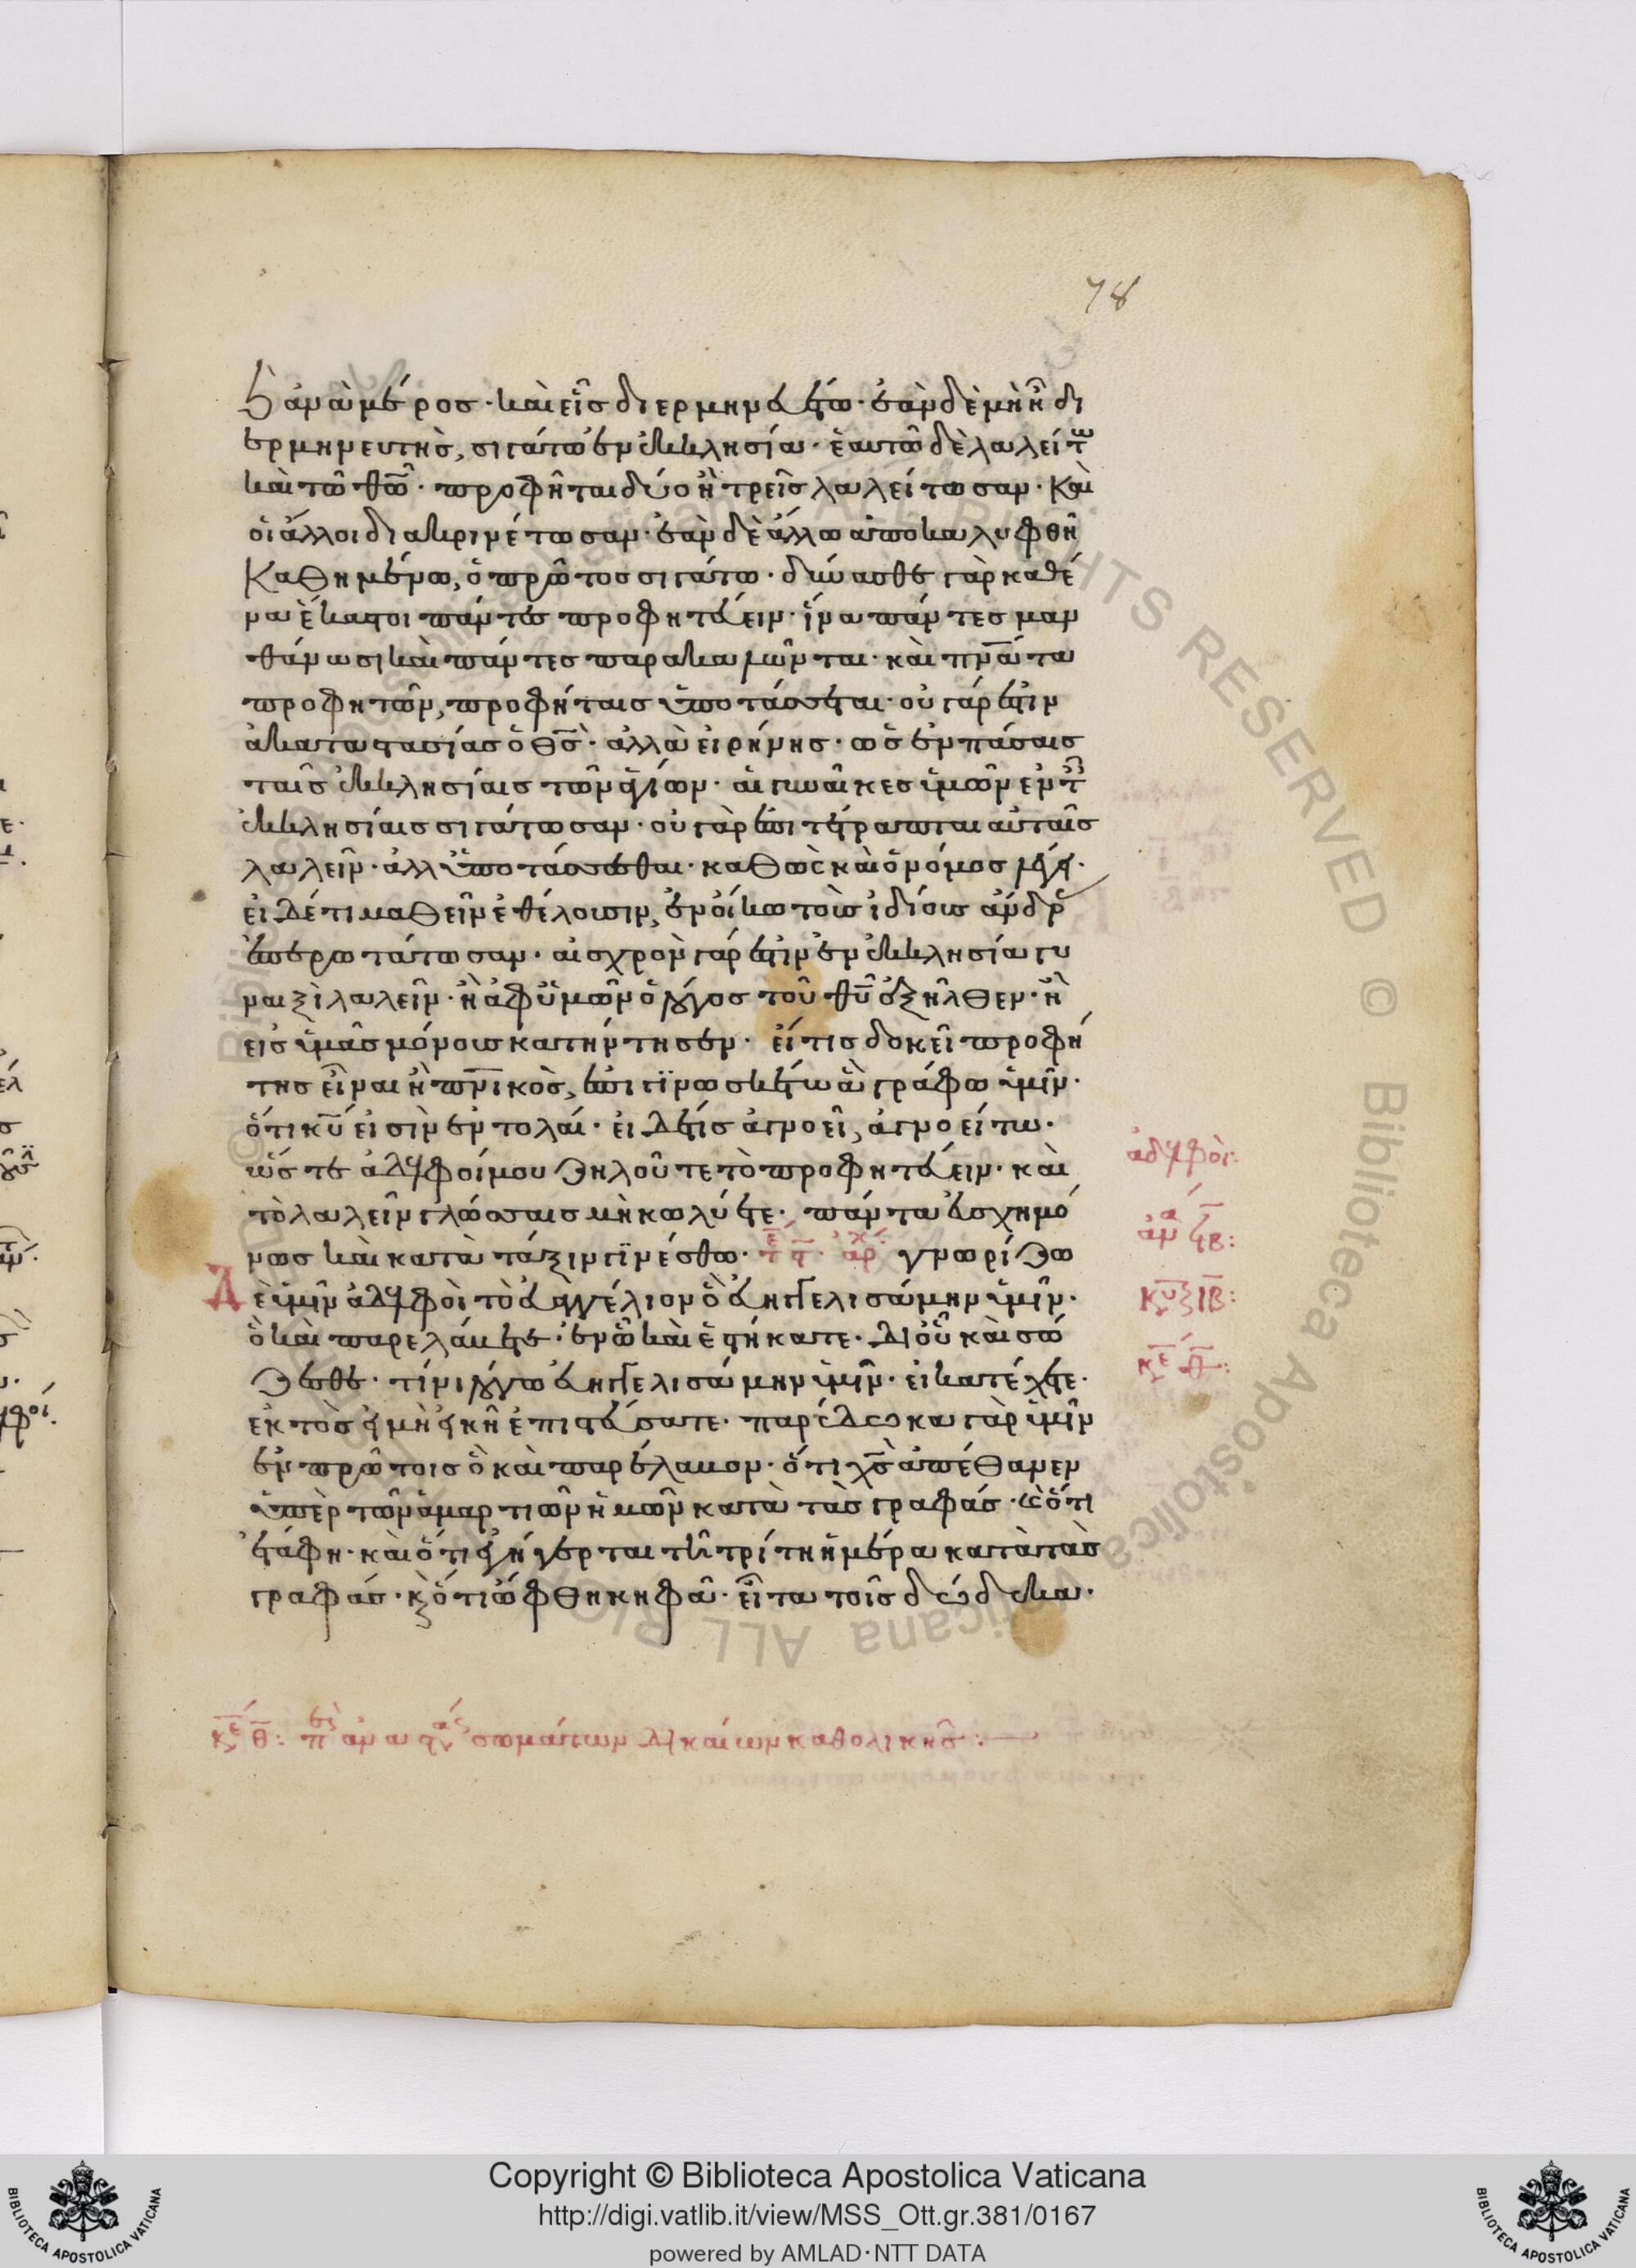 78
ἀνὰ μέρος· καὶ εἷς διερμηνευέτω· ἐὰν δὲ μὴ ᾖ δι
ερμηνευτής, σιγάτω ἐν ἐκκλησία· ἑαυτῶ δὲ λαλείτω
καὶ τῶ θω· προφῆται δύο ἢ τρεῖς λαλείτωσαν· καὶ
οἱ ἄλλοι διακρινέτωσαν· ἐὰν δὲ ἄλλω ἀποκαλυφθῆ
καθημένω, ὁ πρῶτος σιγάτω· δύνασθε γὰρ καθέ
να ἕκαστοι πάντες προφητεύειν· ἵνα πάντες μαν
θάνωσι καὶ πάντες παρακαλῶνται· καὶ πνατα
προφητῶν, προφήταις ὑποτάσσεται· οὐ γάρ ἐστιν
ἀκαταστασίας ὁ θς· ἀλλὰ εἰρήνης· ὡς ἐν πάσαις
ταῖς ἐκκλησίαις τῶν ἁγίων· αἱ γυναῖκες ὑμῶν ἐν τ
ἐκκλησίαις σιγάτωσαν· οὐ γὰρ ἐπιτέτραπται αὐταῖς
λαλεῖν· ἀλλ ὑποτάσσεσθαι· καθὼς καὶ ὁ νόμος λέγει·
εἰ δέ τι μαθεῖν ἐθέλουσιν, ἐν οἴκω τοὺς ἰδίους ἄνδρ
ἐπερωτάτωσαν· αἰσχρὸν γάρ ἐστιν ἐν ἐκκλησία γυ
ναιξὶ λαλεῖν· ἢ ἀφ ὑμῶν ὁ λόγος τοῦ θυ ἐξῆλθεν· ἢ
εἰς ὑμᾶς μόνους κατήντησεν· εἴ τις δοκεῖ προφή
της εἶναι ἢ πνικὸς, ἐπιγινωσκέτω ἃ γράφω ὑμῖν·
ὅτι κυ εἰσὶν ἐντολαί· εἰ δέ τις ἀγνοεῖ, ἀγνοείτω·
ὥστε ἀδελφοί μου ζηλοῦτε τὸ προφητεύειν· καὶ
τὸ λαλεῖν γλώσσαις μὴ κωλύετε· πάντα εὐσχημό
νως καὶ κατὰ τάξιν γινέσθω· γνωρίζω
δὲ ὑμῖν ἀδελφοὶ τὸ εὐαγγέλιον ὃ εὐηγγελισάμην ὑμῖν·
ὃ καὶ παρελάβετε· ἐν ᾧ καὶ ἑστήκατε· δι οὗ καὶ σώ
ζεσθε· τίνι λόγω εὐηγγελισάμην ὑμῖν· εἰ κατέχετε·
ἐκτὸς εἰ μὴ εἰκῆ ἐπιστεύσατε· παρέδωκα γὰρ ὑμῖν
ἐν πρώτοις ὃ καὶ παρέλαβον· ὅτι χς ἀπέθανεν
ὑπὲρ τῶν ἁμαρτιῶν ἡμῶν κατὰ τὰς γραφάς· καὶ ὅτι
ἐτάφη· καὶ ὅτι ἐγήγερται τῆ τρίτη ἡμέρα κατὰ τὰς
γραφάς· κ ὅτι ὤφθη κηφᾶ· εἶτα τοῖς δώδεκα·
ἀδελφοὶ:
κε θ: π ἀναστς σωμάτων δικαίων καθολικῆς:
Copyright © Biblioteca Apostolica Vaticana
http://digi.vatlib.it/view/MSS_Ott.gr.381/0167
powered by AMLAD·NTT DATA
BIBLIOTECA APOSTOLICA VATICANA
BIBLIOTECA APOSTOLICA VATICANA